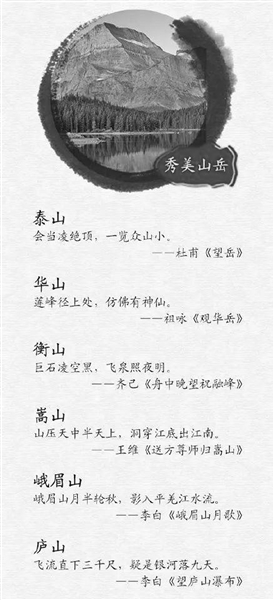 秀美山岳
泰山
会当凌绝顶，一览众山小。
——杜甫《望岳》
华山
莲峰径上处，仿佛有神仙。
——祖咏《观华岳》
衡山
巨石凌空黑，飞泉照夜明。
——齐己《舟中晚望祝融峰》
嵩山
山压天中半天上，洞穿江底出江南。
——王维《送方尊师归嵩山》
峨眉山
峨眉山月半轮秋，影入平羌江水流。
——李白《峨眉山月歌》
庐山
飞流直下三千尺，疑是银河落九天。
——李白《望庐山瀑布》